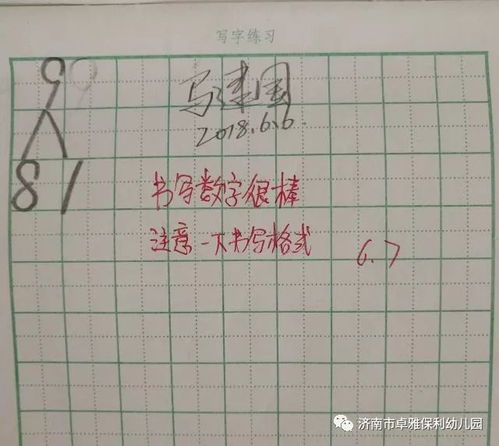 写字练习
9 9
马建国
2018.6.6.
8 1
书写数字很棒
注意一下书写格式
6.7
济南市卓雅保利幼儿园